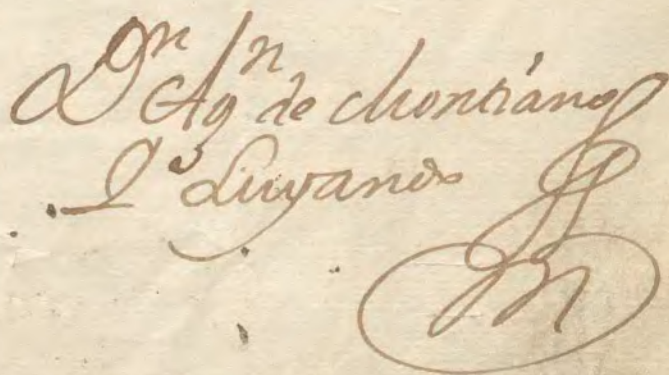 Dn Agn de Montiano
y Luyando